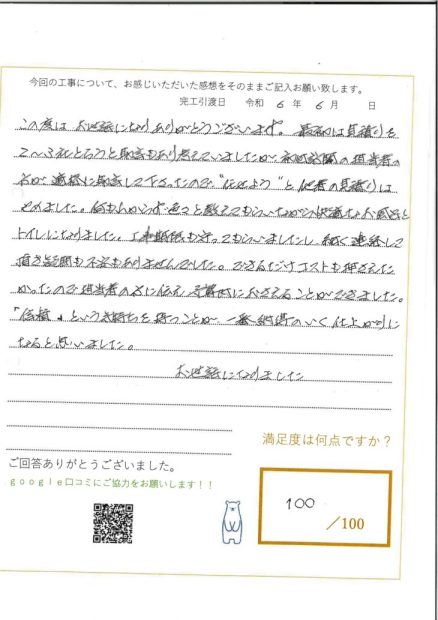 今回の工事について、お感じいただいた感想をそのままご記入お願い致します。
完工引渡日 令和 6 年 6 月 日
この度は お世話になりありがとうございます。 最初は見積りを
2〜3社とろうと 考えていましたが 初回訪問の担当者の
方が 親切に して下さったので "任せよう" と他者の見積りは
やめました。何もわからず色々と教えてもらいながら快適なお風呂と
トイレになりました。工事 も守ってもらいましたし、細く連絡して
頂き疑問も不安もありませんでした。できるだけコストも押さえた
かったので担当者の方に伝え、 におさえることができました。
「信頼」という気持ちを持つことが 一番納得のいく仕上がりに
なると思いました。
お世話になりました
満足度は何点ですか？
ご回答ありがとうございました。
google口コミにご協力をお願いします！！
100
／100